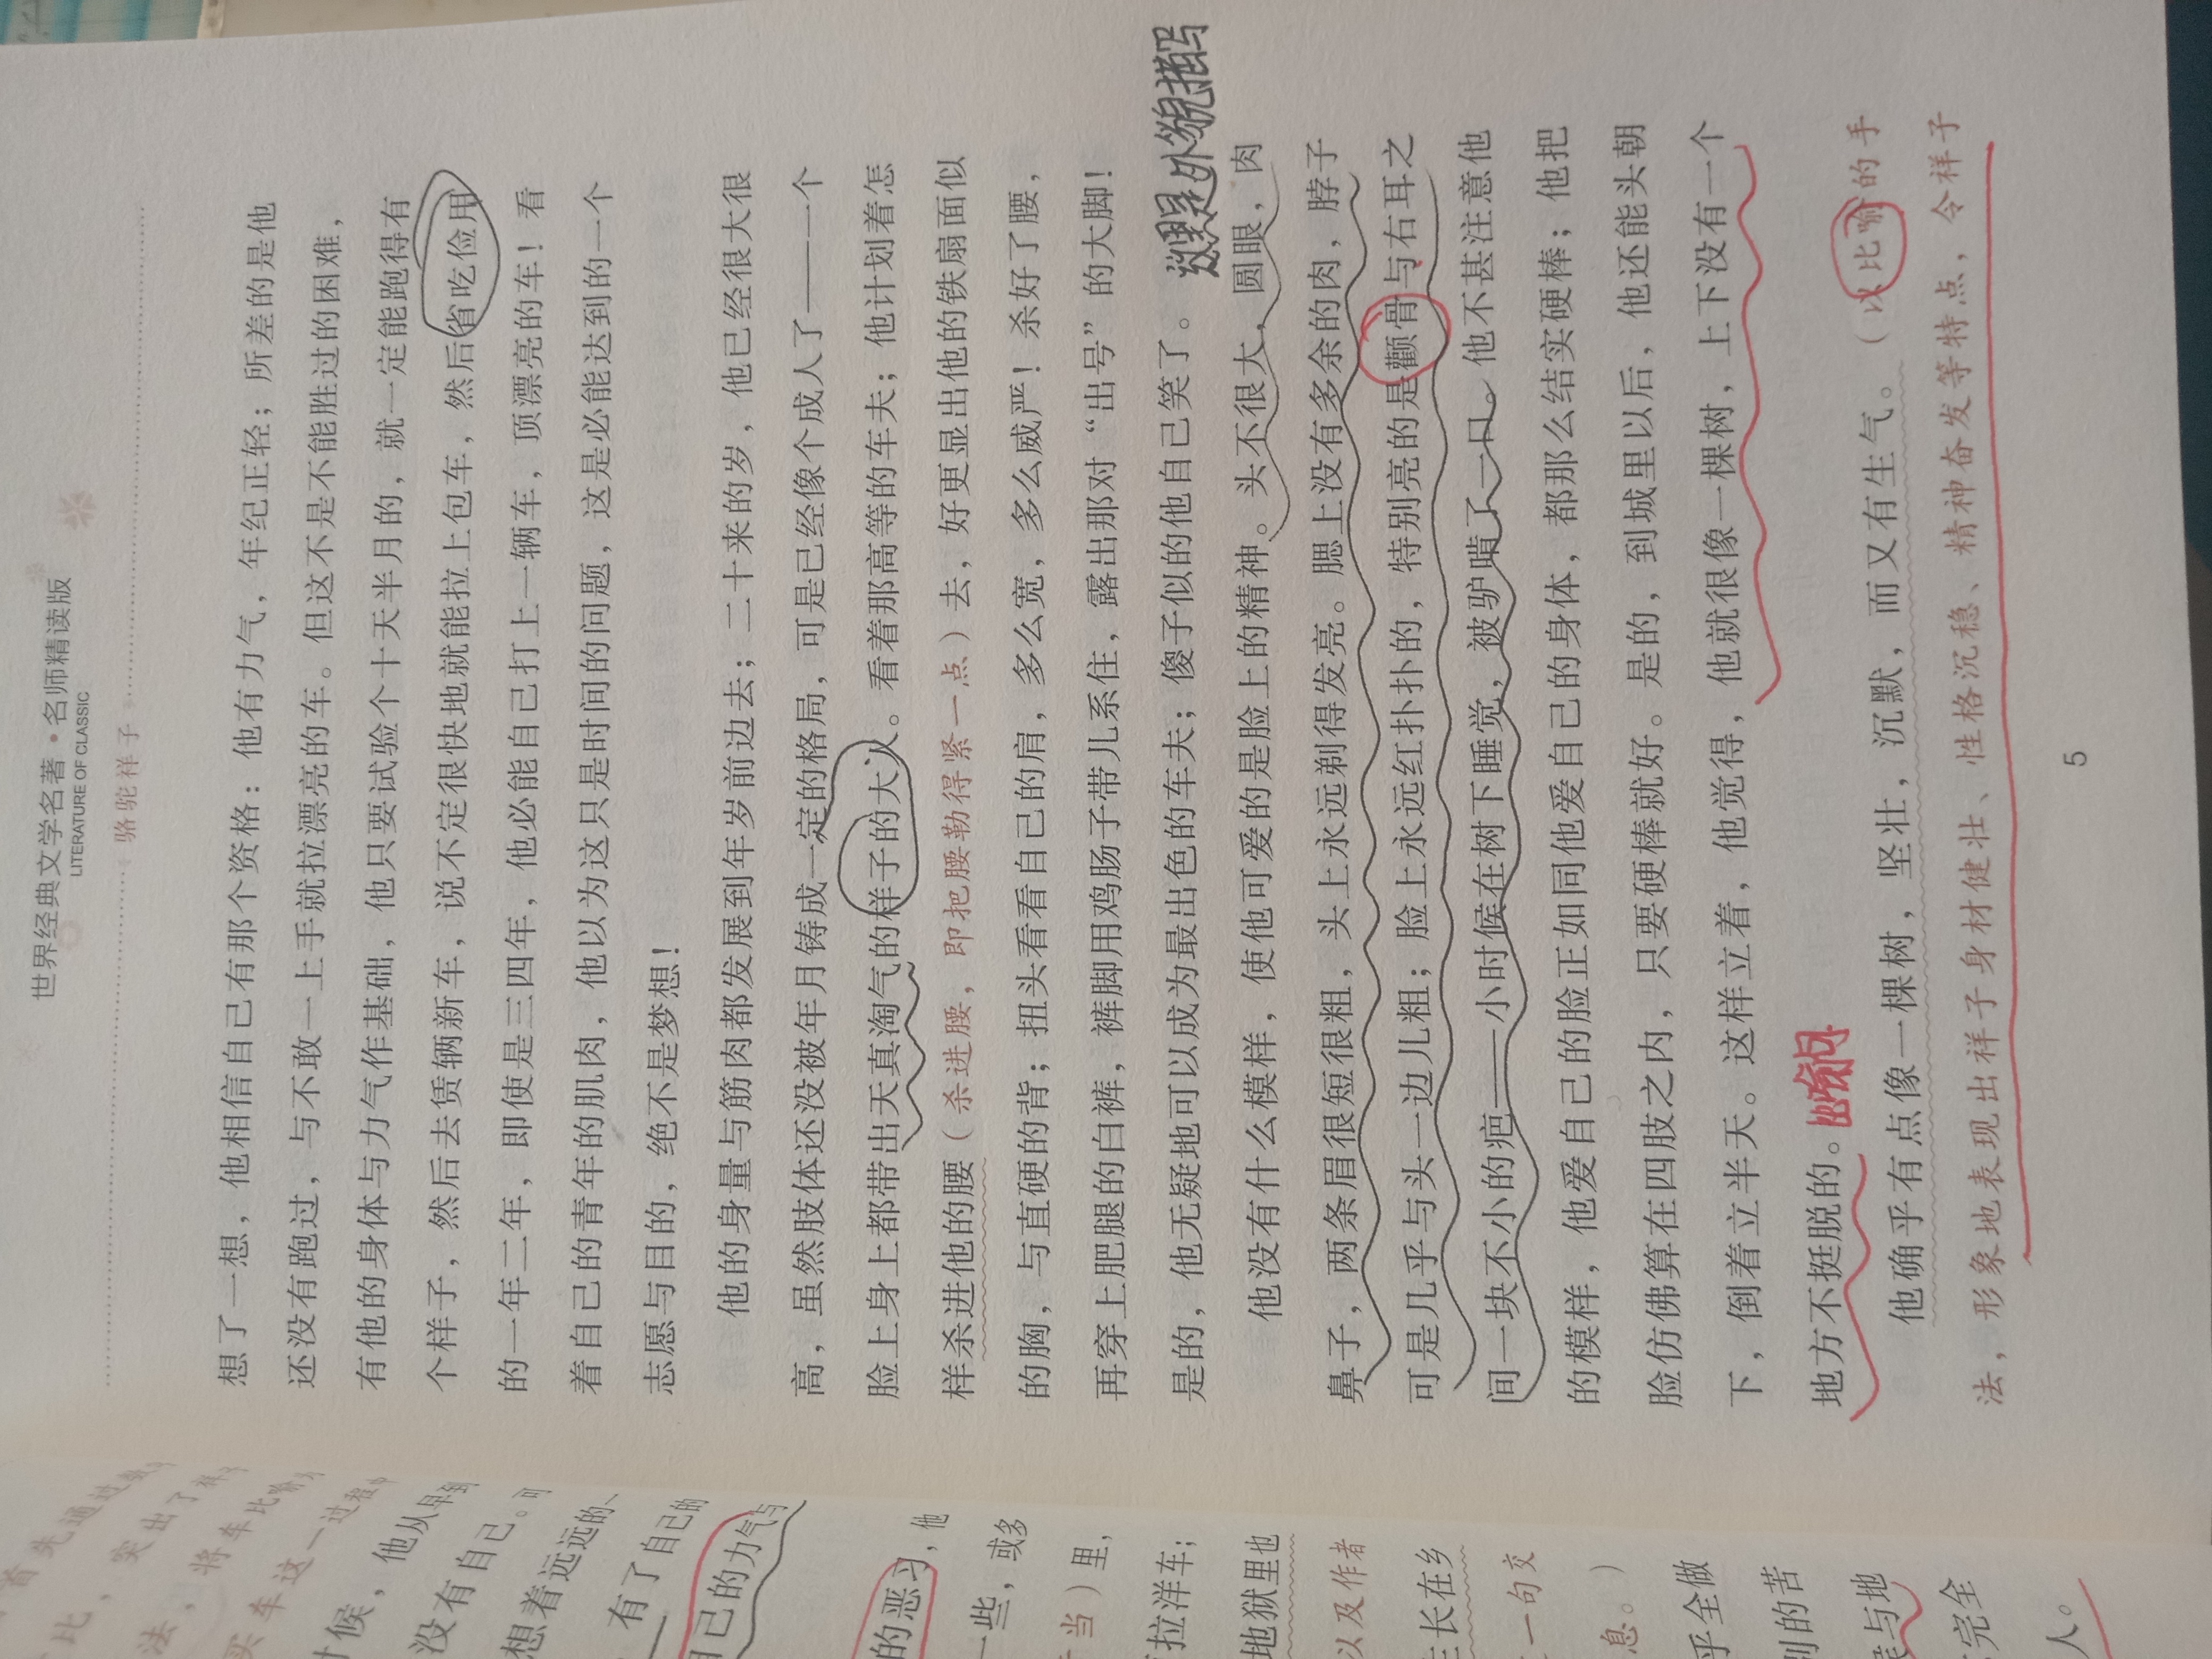 世界经典文学名著•名师精读版
LITERATURE OF CLASSIC
骆驼祥子
想了一想，他相信自己有那个资格：他有力气，年纪正轻；所差的是他
还没有跑过，与不敢一上手就拉漂亮的车。但这不是不能胜过的困难，
有他的身体与力气作基础，他只要试验个十天半月的，就一定能跑得有
个样子，然后去赁辆新车，说不定很快地就能拉上包车，然后省吃俭用
的一年二年，即使是三四年，他必能自己打上一辆车，顶漂亮的车！看
着自己的青年的肌肉，他以为这只是时间的问题，这是必能达到的一个
志愿与目的，绝不是梦想！
他的身量与筋肉都发展到年岁前边去；二十来的岁，他已经很大很
高，虽然肢体还没被年月铸成一定的格局，可是已经像个成人了——一个
脸上身上都带出天真淘气的样子的大人。看着那高等的车夫；他计划着怎
样杀进他的腰（杀进腰，即把腰勒得紧一点）去，好更显出他的铁扇面似
的胸，与直硬的背；扭头看看自己的肩，多么宽，多么威严！杀好了腰，
再穿上肥腿的白裤，裤脚用鸡肠子带儿系住，露出那对“出号”的大脚！
是的，他无疑地可以成为最出色的车夫；傻子似的他自己笑了。
这里是外貌描写
他没有什么模样，使他可爱的是脸上的精神。头不很大，圆眼，肉
鼻子，两条眉很短很粗，头上永远剃得发亮。腮上没有多余的肉，脖子
可是几乎与头一边儿粗；脸上永远红扑扑的，特别亮的是颧骨与右耳之
间一块不小的疤——小时候在树下睡觉，被驴啃了一口。他不甚注意他
的模样，他爱自己的脸正如同他爱自己的身体，都那么结实硬棒；他把
脸仿佛算在四肢之内，只要硬棒就好。是的，到城里以后，他还能头朝
下，倒着立半天。这样立着，他觉得，他就很像一棵树，上下没有一个
地方不挺脱的。
他确乎有点像一棵树，坚壮，沉默，而又有生气。（以比喻的手
法，形象地表现出祥子身材健壮、性格沉稳、精神奋发等特点，令祥子
5
候，他从早到
没有自己。可
想着远远的、
有了自己的
己的力气与
的恶习，他
一些，或多
当）里，
拉洋车；
地狱里也
以及作者
生长在乡
一句交
息。）
乎全做
别的苦
与地
完全
人。